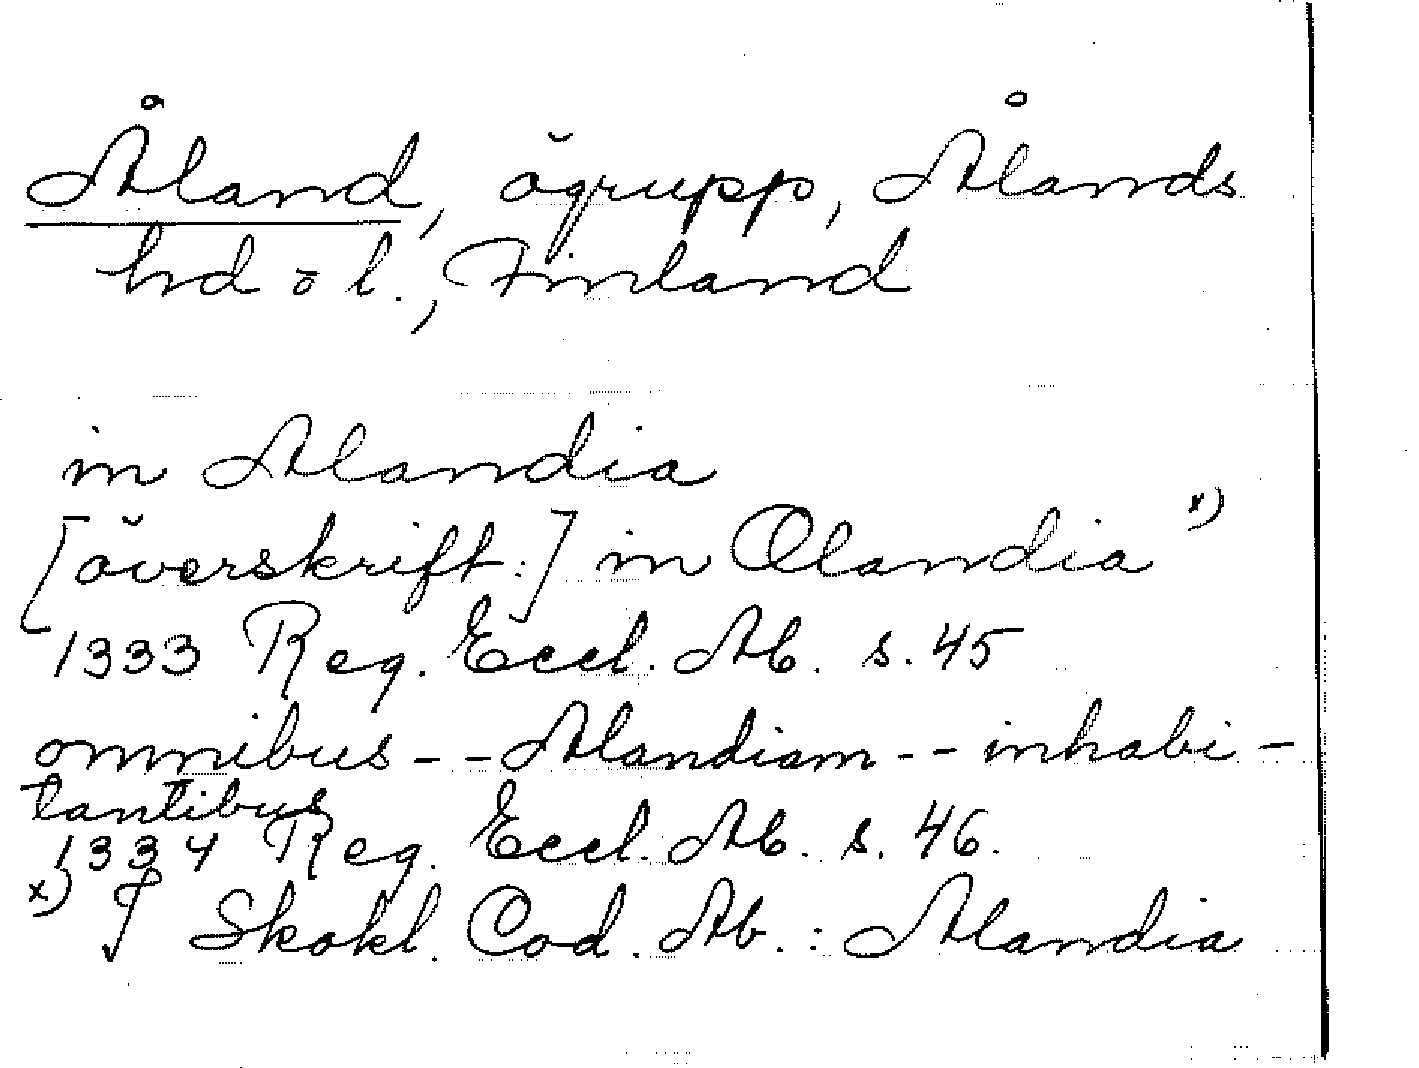 Åland, ögrupp, Ålands
hd o l., Finland
in Alandia
[överskrift:] in Olandia x)
1333 Reg. Eccl. Ab. s. 45
omnibus -- Alandiam -- inhabi-
tantibus
1334 Reg. Eccl. Ab. s. 46.
x) I Skokl. Cod. Ab. : Alandia